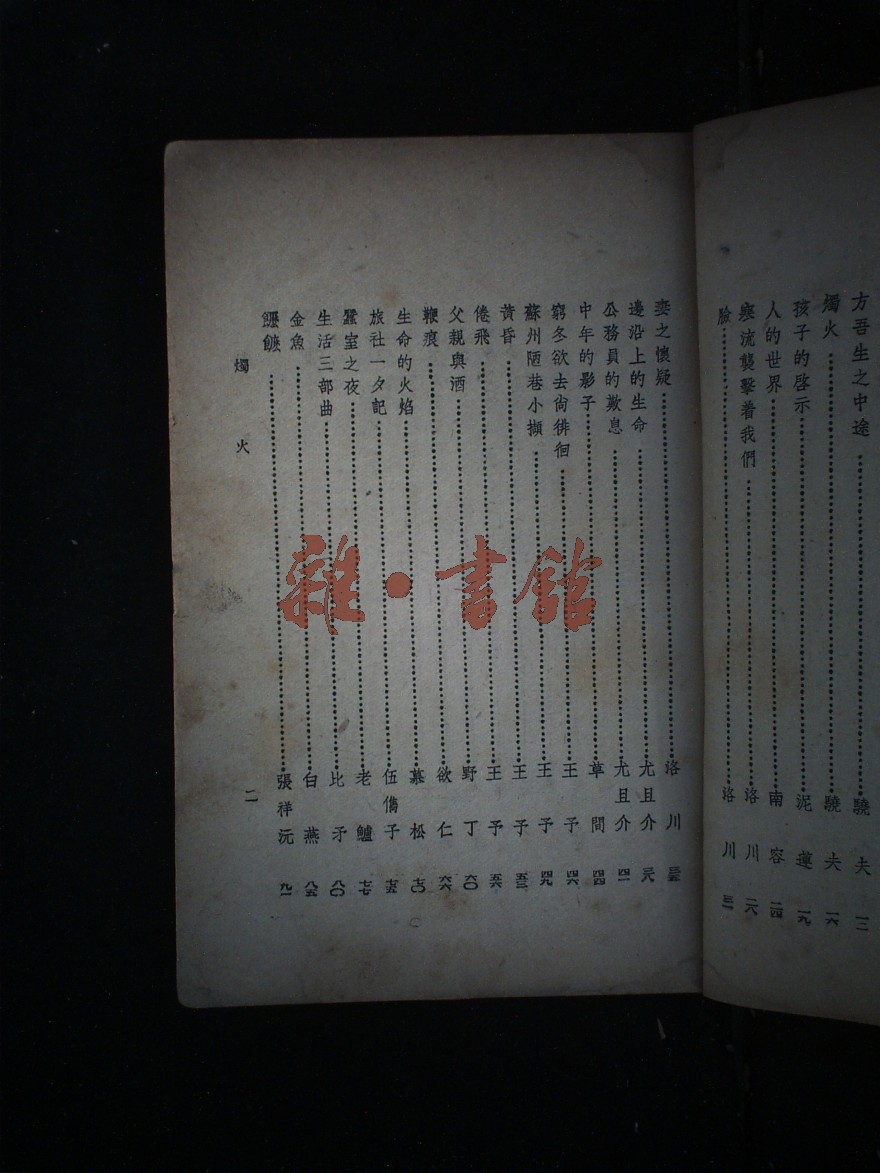 方吾生之中途……驍夫 一二
燭火……驍夫 一六
孩子的啓示……泥蓮 一九
人的世界……南容 二四
寒流襲擊着我們……洛川 二八
臉……洛川 三一
妻之懷疑……洛川 三五
邊沿上的生命……尤且介 三八
公務員的歎息……尤且介 四一
中年的影子……草間 四四
窮冬欲去尙徘徊……王予 四六
蘇州陋巷小擷……王予 四九
黃昏……王予 五三
倦飛……王予 五六
鞭痕……野丁 六〇
父親與酒……欲仁 六六
生命的火焰……慕松 七〇
旅社一夕記……伍儁子 七五
蠶室之夜……老鱸 七七
生活三部曲……比矛 八〇
金魚……白燕 八五
……張祥沅 九一
燭火 二
雜·書館